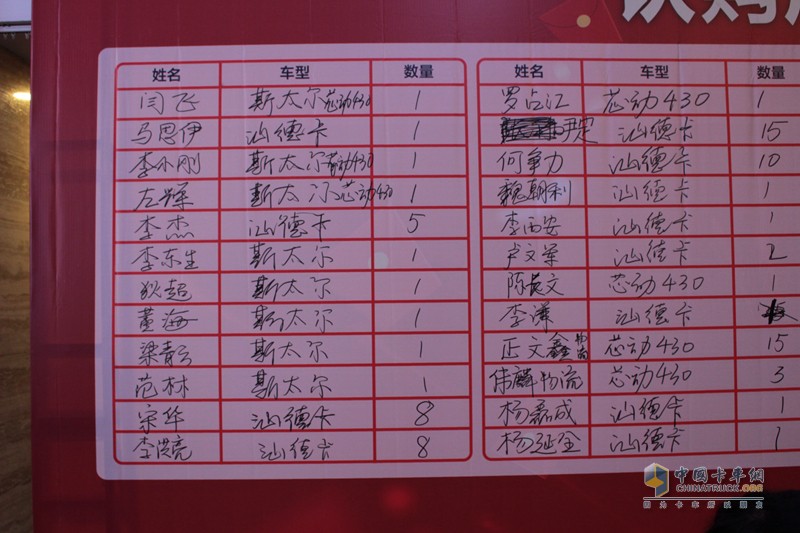 姓名 车型 数量
闫飞 斯太尔芯动430 1
马思伊 汕德卡 1
李小刚 斯太尔芯动430 1
左辉 斯太尔芯动430 1
李杰 汕德卡 5
李东生 斯太尔 1
狄超 斯太尔 1
黄海 斯太尔 1
梁青云 斯太尔 1
范林 斯太尔 1
宋华 汕德卡 8
李洪亮 汕德卡 8
姓名 车型 数量
罗占江 芯动430 1
汕德卡 15
何争力 汕德卡 10
魏朝利 汕德卡 1
李西安 汕德卡 1
卢文军 汕德卡 2
陈长文 芯动430 1
李洋 汕德卡
正文鑫物流 芯动430 15
伟麟物流 芯动430 3
杨磊成 汕德卡 1
杨延全 汕德卡 1
中国卡车网
CHINATRUCK.ORG
因为卡车所以朋友